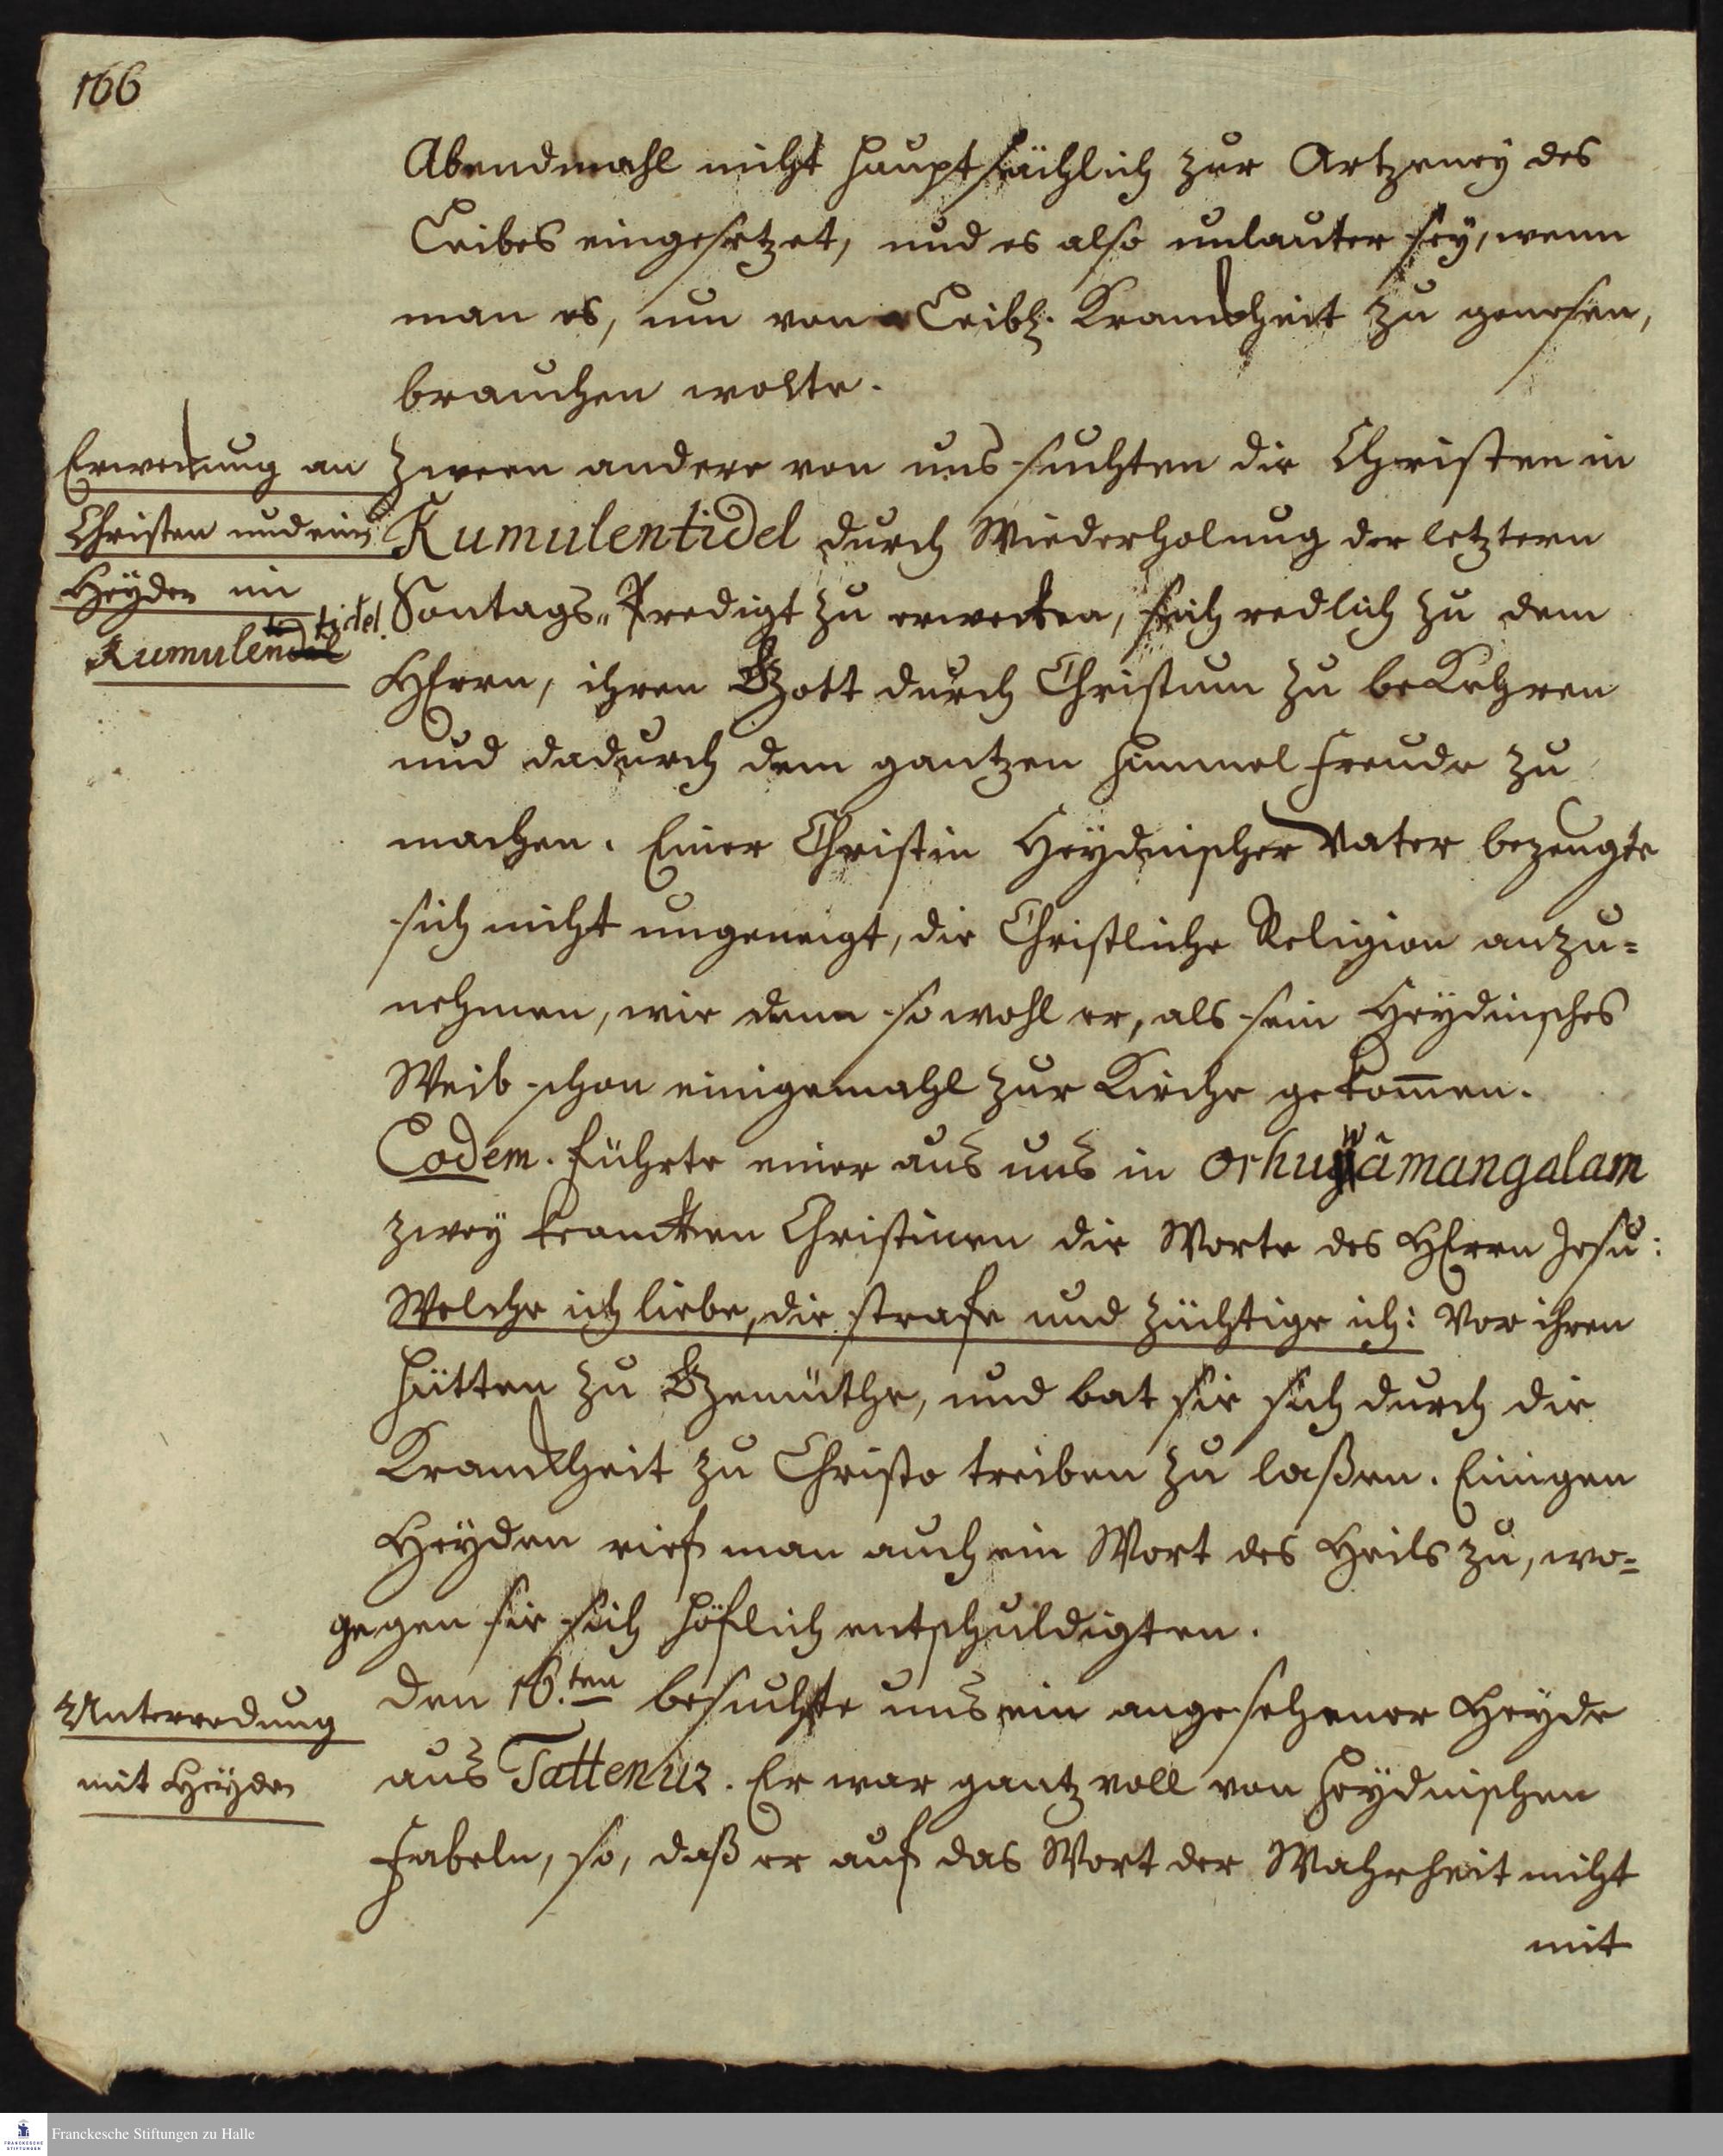 166
Abendmahl nicht hauptsächlich zur Artzeney des
Leibes eingesetzet, und es also unlauter sey, wenn
man es, um von Leibl. Kranckheit zu genesen,
brauchen wolte.
Erweckung an
Christen und eines
Heyden in
Kumulentidel.
Zween andere von uns suchten die Christen in
Kumulentidel durch Wiederholung der letztern
Sontags-Predigt zu erwecken, sich redlich zu dem
HErrn, ihren Gott durch Christum zu bekehren
und dadurch dem gantzen Himmel Freude zu
machen. Einer Christin Heydnischer Vater bezeugte
sich nicht ungeneigt, die Christliche Religion anzu=
nehmen, wie denn so wohl er, als sein Heydnisches
Weib schon einigemahl zur Kirche gekom̅en.
Eodem. führte einer aus uns in Orhuwâmangalam
zwey krancken Christinen die Worte des HErrn Jesu:
Welche ich liebe, die strafe und züchtige ich: vor ihren
Hütten zu Gemüthe, und bat sie sich durch die
Kranckheit zu Christo treiben zu laßen. Einigen
Heyden rief man auch ein Wort des Heils zu, wo=
gegen sie sich höflich entschuldigten.
Unterredung
mit Heyden
Den 16.ten besuchte uns ein angesehener Heyde
aus Tattenur. Er war gantz voll von heydnischen
Fabeln, so, daß er auf das Wort der Wahrheit nicht
mit
Franckesche Stiftungen zu Halle